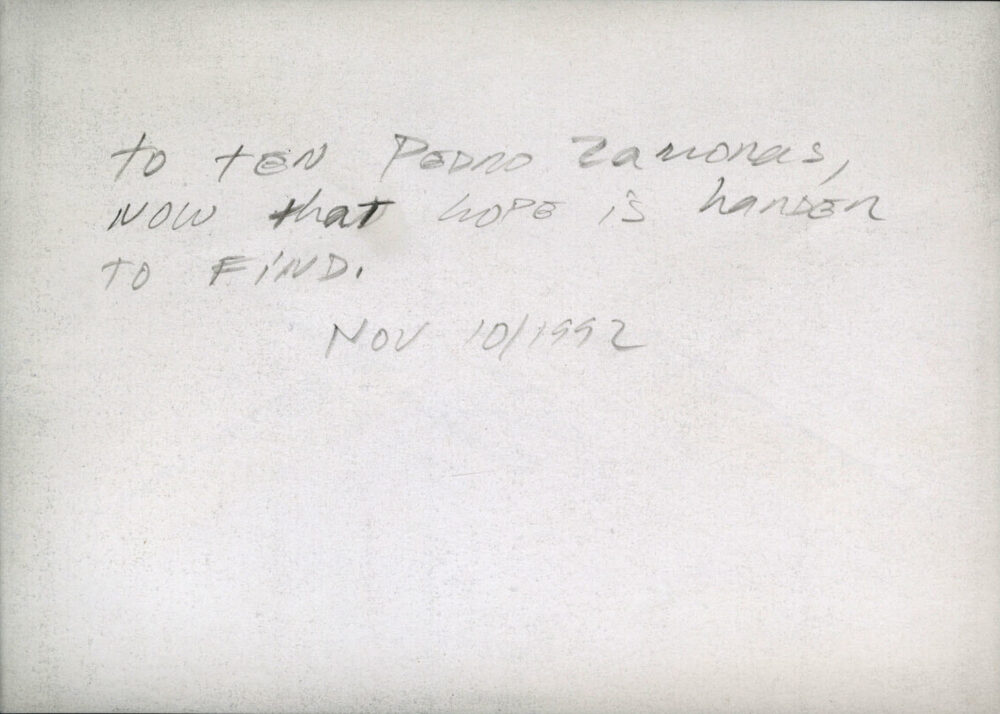 to ten Pedro Zamoras,
now that hope is harder
to find.
Nov 10/1992